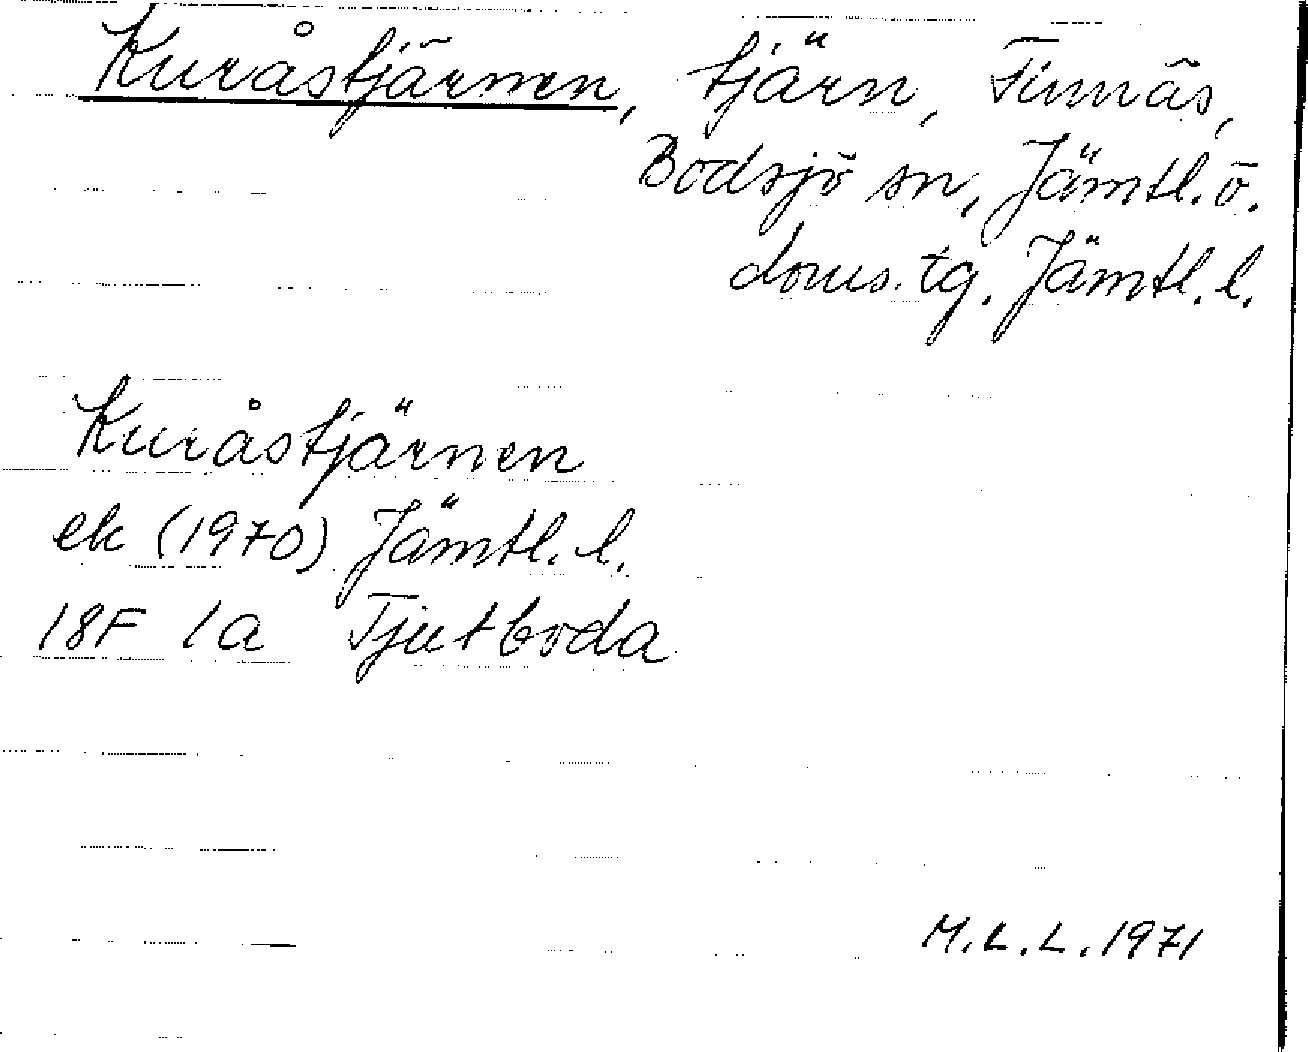 Kuråstjärnen, tjärn, Finnäs,
Bodsjö sn, Jämtl. ö.
doms. tg. Jämtl. l.
Kuråstjärnen
ek (1970) Jämtl. l.
18F 1a Tjutboda
M.L.L. 1971